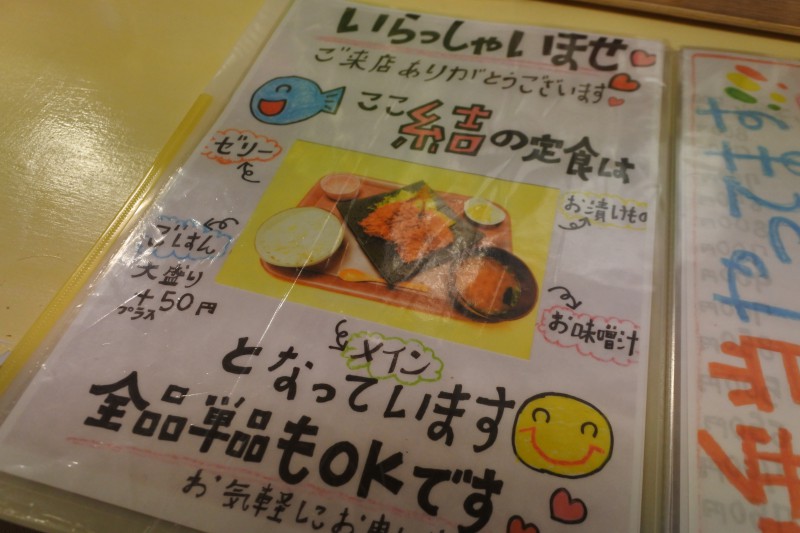 いらっしゃいませ
ご来店ありがとうございます
ここ結の定食は
ゼリー
お漬けもの
ごはん
大盛り
+50円
プラス
お味噌汁
メイン
となっています
全品単品もOKです
お気軽にお申し